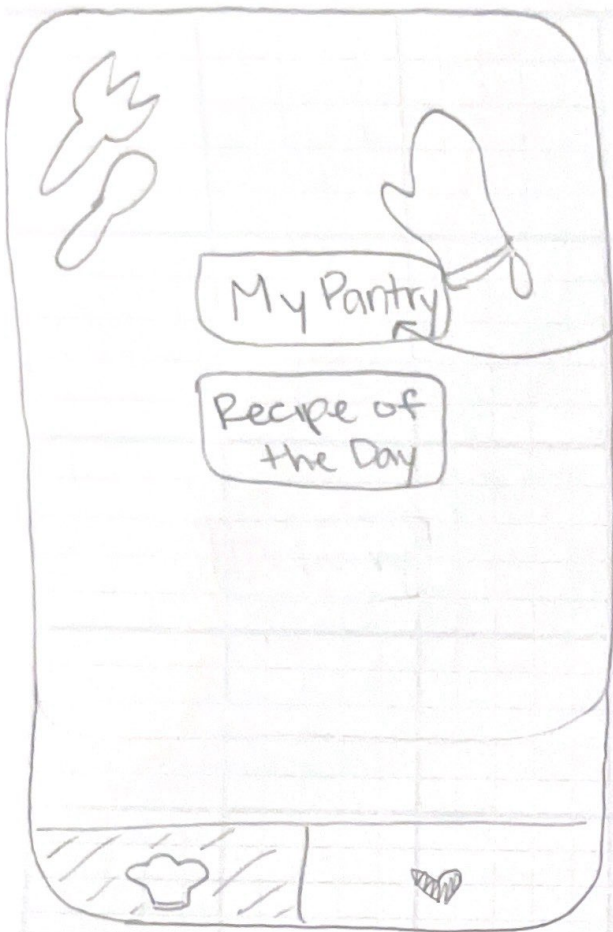 My Pantry
Recipe of
the Day